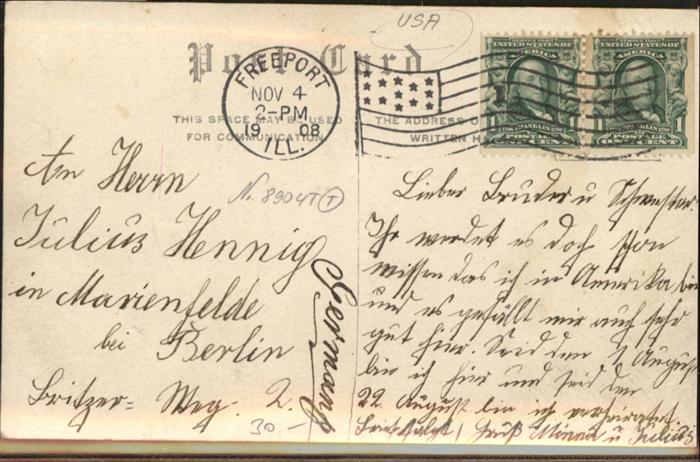 USA
Post Card
FREEPORT
NOV 4
2-PM
1908
ILL.
THIS SPACE MAY BE USED
FOR COMMUNICATION
THE ADDRESS
WRITTEN
SERIES 1902
UNITED STATES OF
AMERICA
FRANKLIN
1 POSTAGE 1
ONE CENT
SERIES 1902
UNITED STATES OF
AMERICA
FRANKLIN
1 POSTAGE 1
ONE CENT
An Herrn
N. 8904T T
Julius Hennig
in Marienfelde
bei Berlin
Britzer= Weg. 2.
Germany
30.-
Lieber Bruder u Schwester
Ihr werdet es doch schon
wissen das ich in Amerika bin
und es gefällt mir auch sehr
gut hier. Seid den 7 August
bin ich hier und seid den
22. August bin ich verheiratet.
Brief folgt, Gruß Minna u Julius